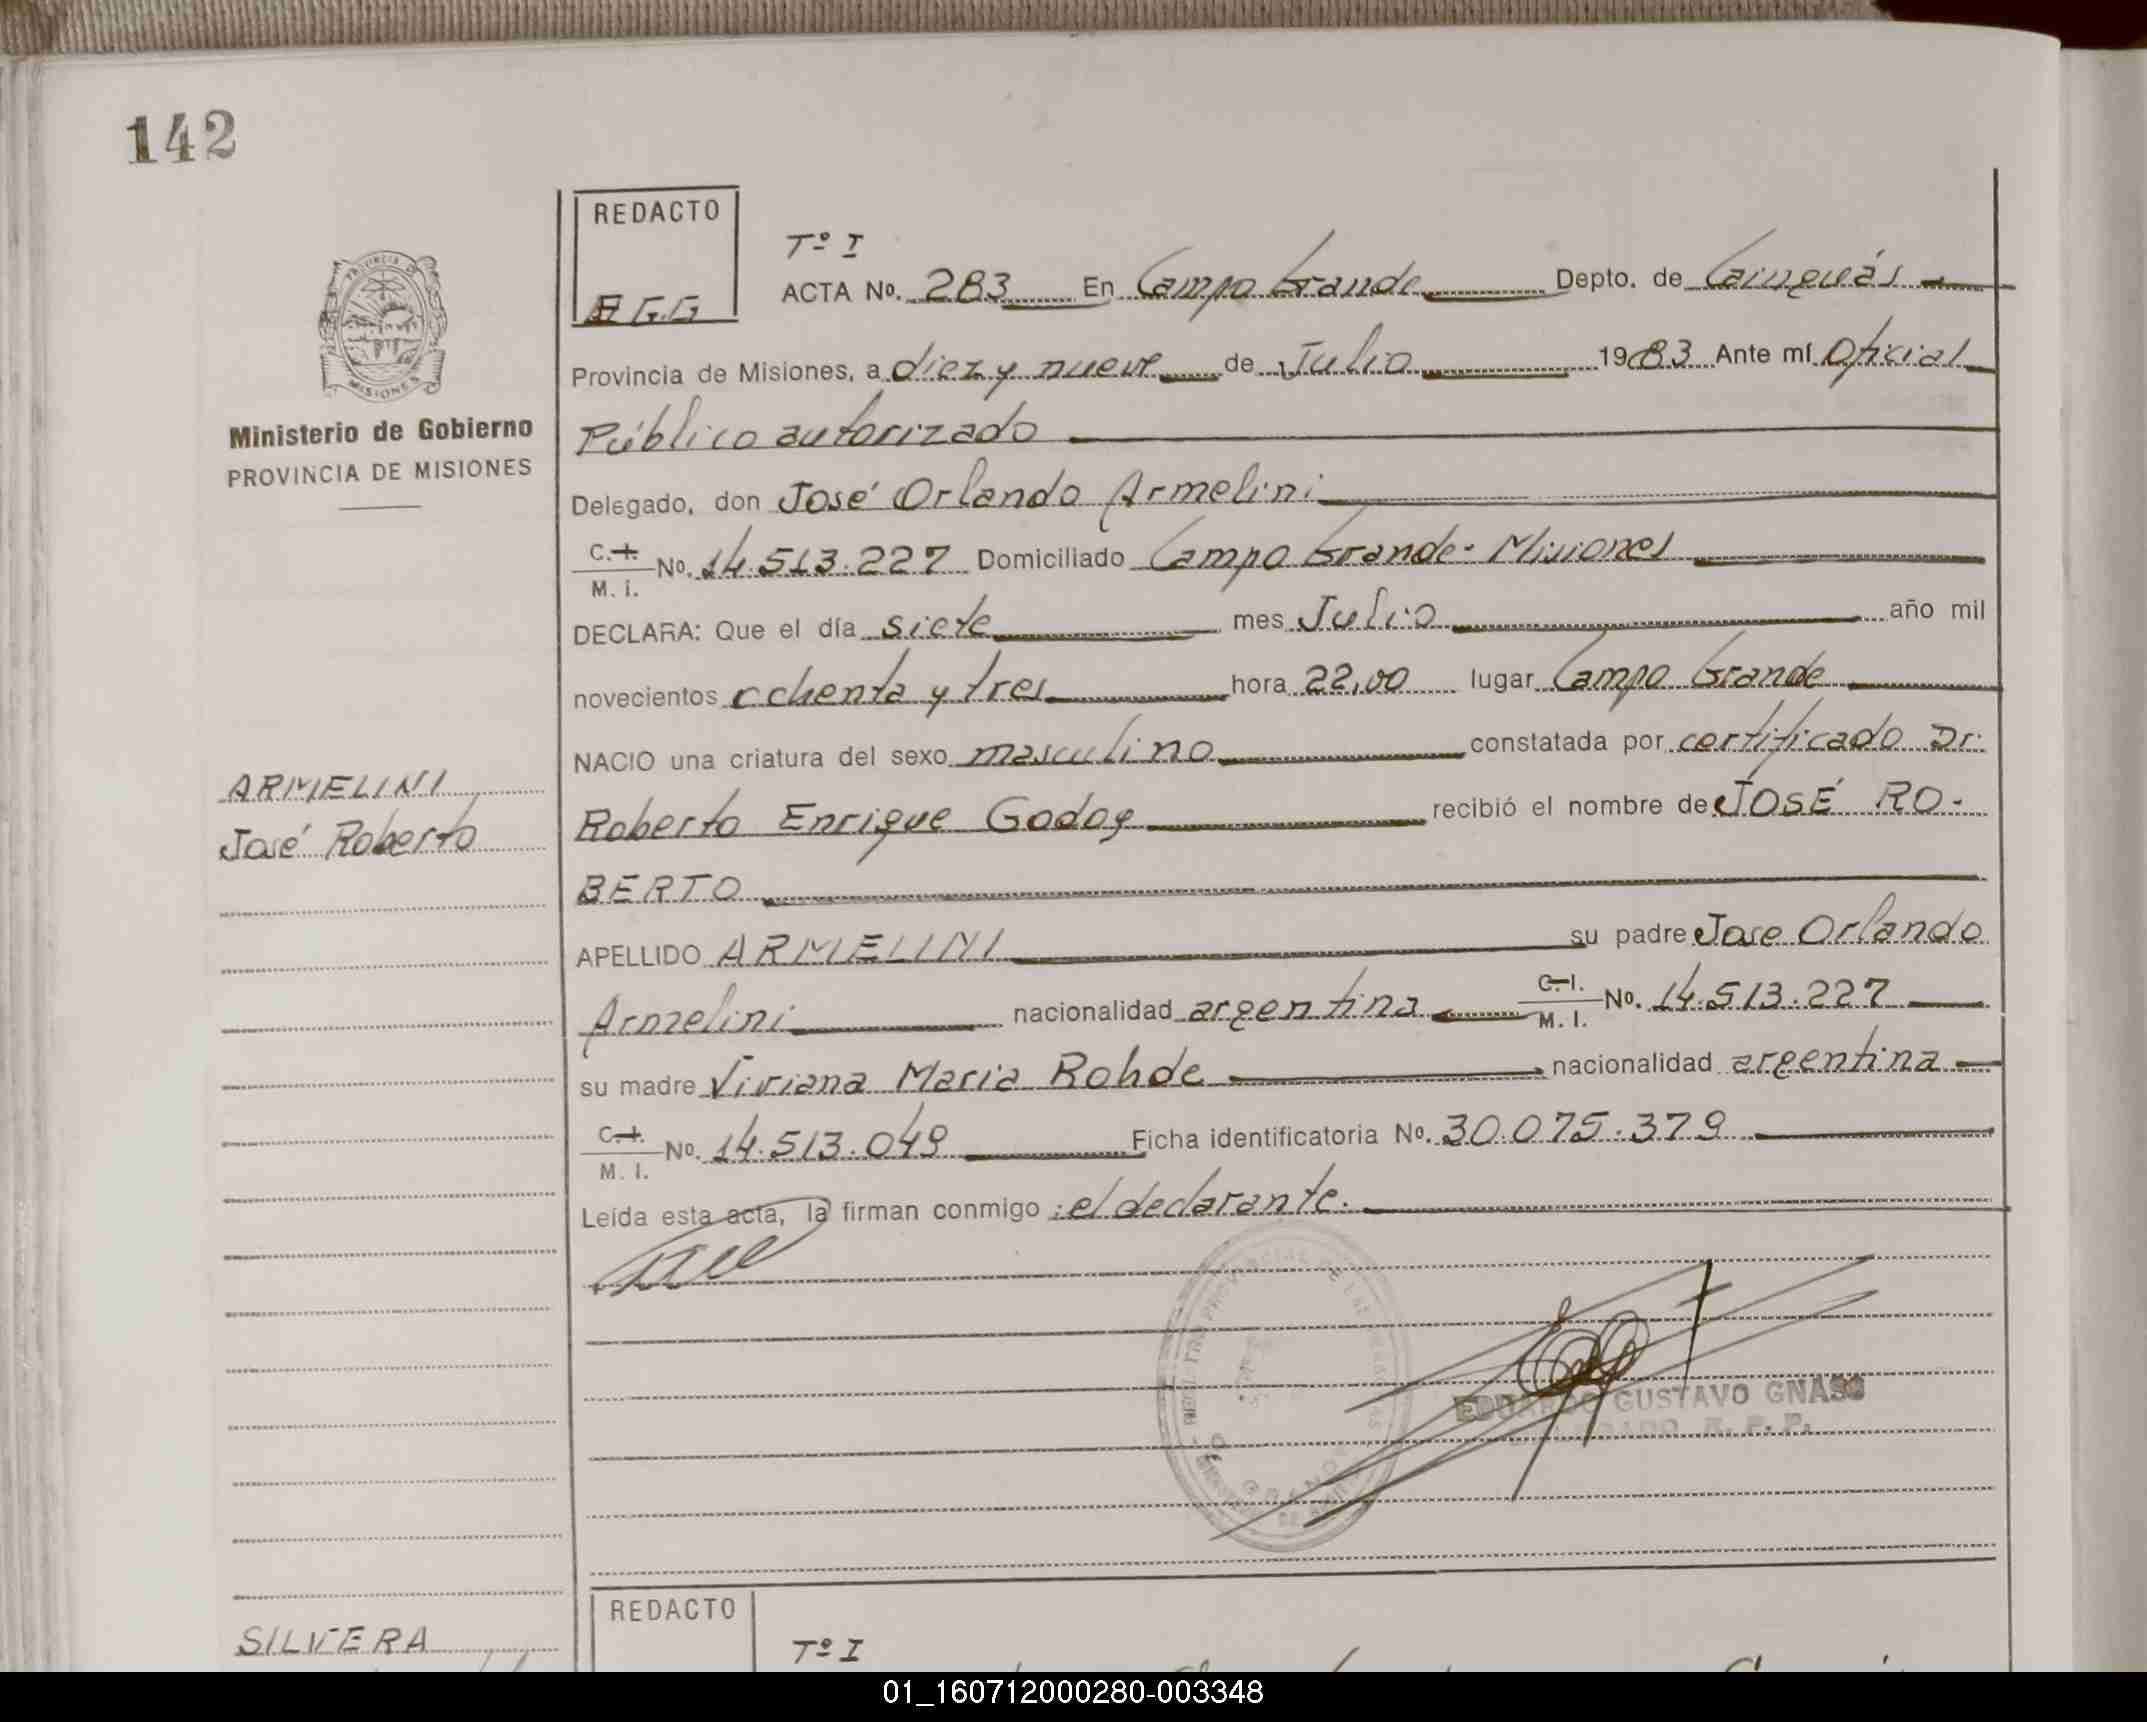 142
REDACTO
E G.G
Tº I
ACTA No. 283 En Campo Grande Depto. de Cainguás
Provincia de Misiones, a diez y nueve de Julio 1983 Ante mí Oficial
Público autorizado
Delegado, don José Orlando Armelini
C.I. M.I. No. 14.513.227 Domiciliado Campo Grande - Misiones
DECLARA: Que el día siete mes Julio año mil
novecientos ochenta y tres hora 22,00 lugar Campo Grande
NACIO una criatura del sexo masculino constatada por certificado Dr.
Roberto Enrique Godoy recibió el nombre de JOSÉ RO-
BERTO
APELLIDO ARMELINI su padre Jose Orlando
Armelini nacionalidad argentina C.I. M.I. No. 14.513.227
su madre Viviana Maria Rohde nacionalidad argentina
C.I. M.I. No. 14.513.049 Ficha identificatoria No. 30.075.379
Leída esta acta, la firman conmigo : el declarante.
EDUARDO GUSTAVO GNASS
R. P. P.
PROVINCIA DE
MISIONES
Ministerio de Gobierno
PROVINCIA DE MISIONES
ARMELINI
José Roberto
SILVERA
REDACTO
Tº I
01_160712000280-003348